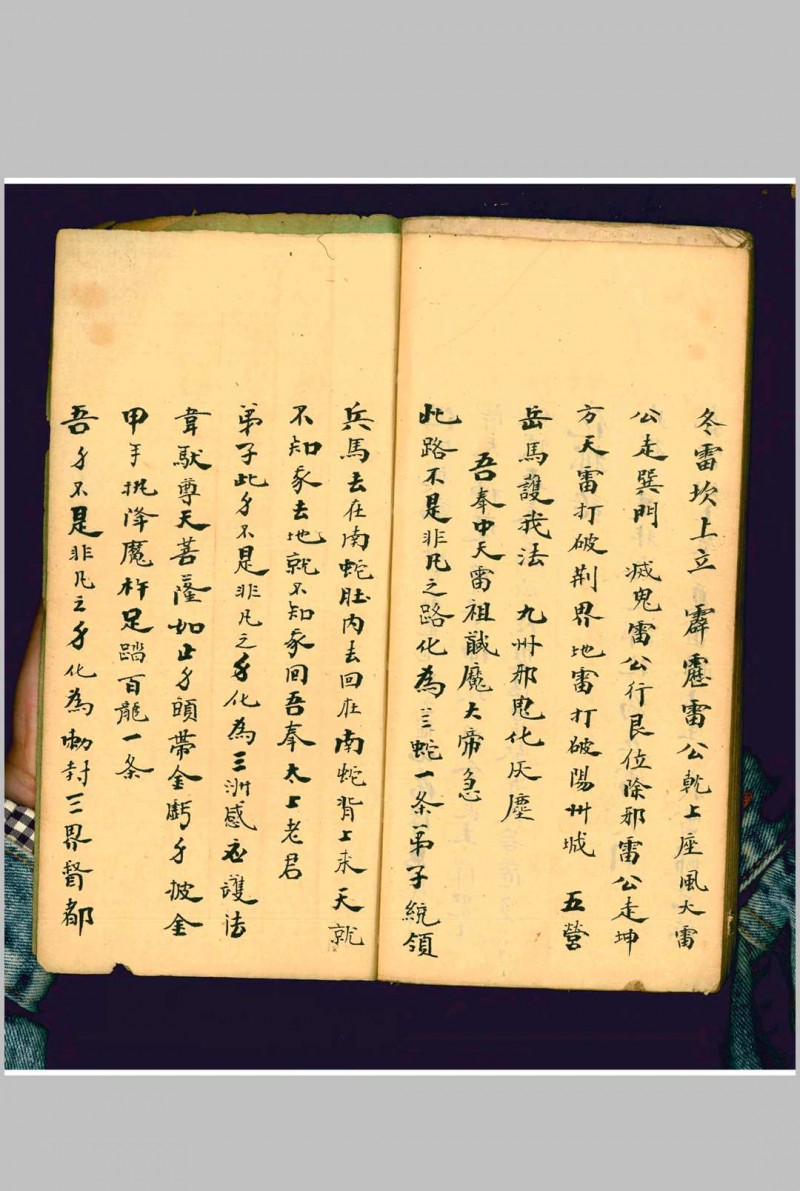 冬雷坎上立霹靂雷公軏上座風火雷
公走巽門滅鬼雷公行艮位除邪雷公走坤
方天雷打破荆界地雷打破陽州城五營
岳馬護我法九州邪鬼化灰塵
吾奉中天雷祖馘魔大帝急
此路不是非凡之路化為三蛇一条弟子統領
兵馬去在南蛇肚内去回在南蛇背上來天就
不知我去地就不知我回吾奉太上老君
弟子此身不是非凡之身化為三洲感应護法
韋馱尊天菩薩如止身頭帶金盔身披金
甲手执降魔杵足踏百龍一条
吾身不是非凡之身化為勅封三界督都